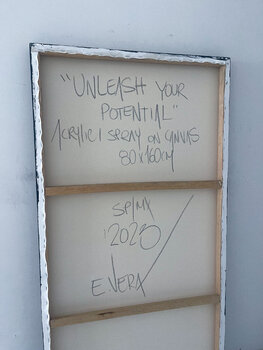 "UNLEASH YOUR
POTENTIAL"
ACRYLIC / SPRAY ON CANVAS
80x160CM
SP/MX
2023
E.VERA